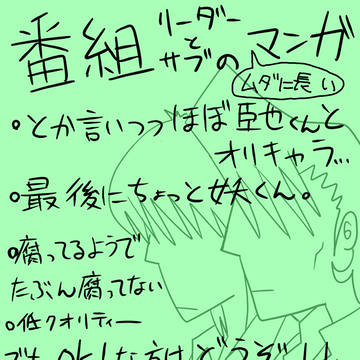 番組リーダーとサブのマンガ
ムダに長い
・とか言いつつほぼ臣也くんと
オリキャラ…
・最後にちょっと妹くん。
・腐ってるようで
たぶん腐ってない
・低クオリティー
でもOKな方はどうぞ!!